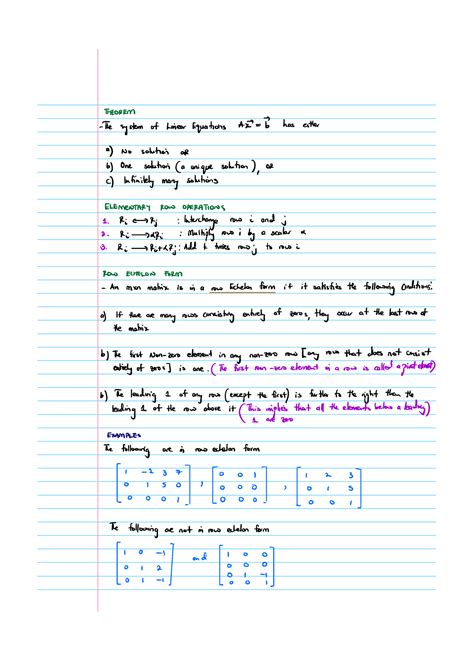 THEOREM
- The system of Linear Equations Ax = b has either
a) No solution OR
b) One solution (a unique solution), OR
c) Infinitely many solutions
ELEMENTARY ROW OPERATIONS
1. Ri ⟷ Rj : Interchange row i and j
2. Ri ⟶ αRi : Multiply row i by a scalar α
3. Ri ⟶ Ri + αRj : Add k times row j to row i
ROW ECHELON FORM
- An mxn matrix is in a row Echelon form if it satisfies the following conditions:
a) If there are many rows consisting entirely of zeros, they occur at the last row of
the matrix
b) The first Non-zero element in any non-zero row [any row that does not consist
entirely of zeros] is one. (The first non-zero element in a row is called a pivot
b) The leading 1 of any row (except the first) is further to the right than the
leading 1 of the row above it (This implies that all the elements below a leading
1 are zero)
EXAMPLES
The following are in row echelon form
1 -2 3 7 0 0 1 1 2 3
0 1 5 0 , 0 0 0 , 0 1 5
0 0 0 1 0 0 0 0 0 1
The following are not in row echelon form
1 0 -1 and 1 0 0
0 1 2 0 0 0
0 1 -1 0 1 -1
0 0 1